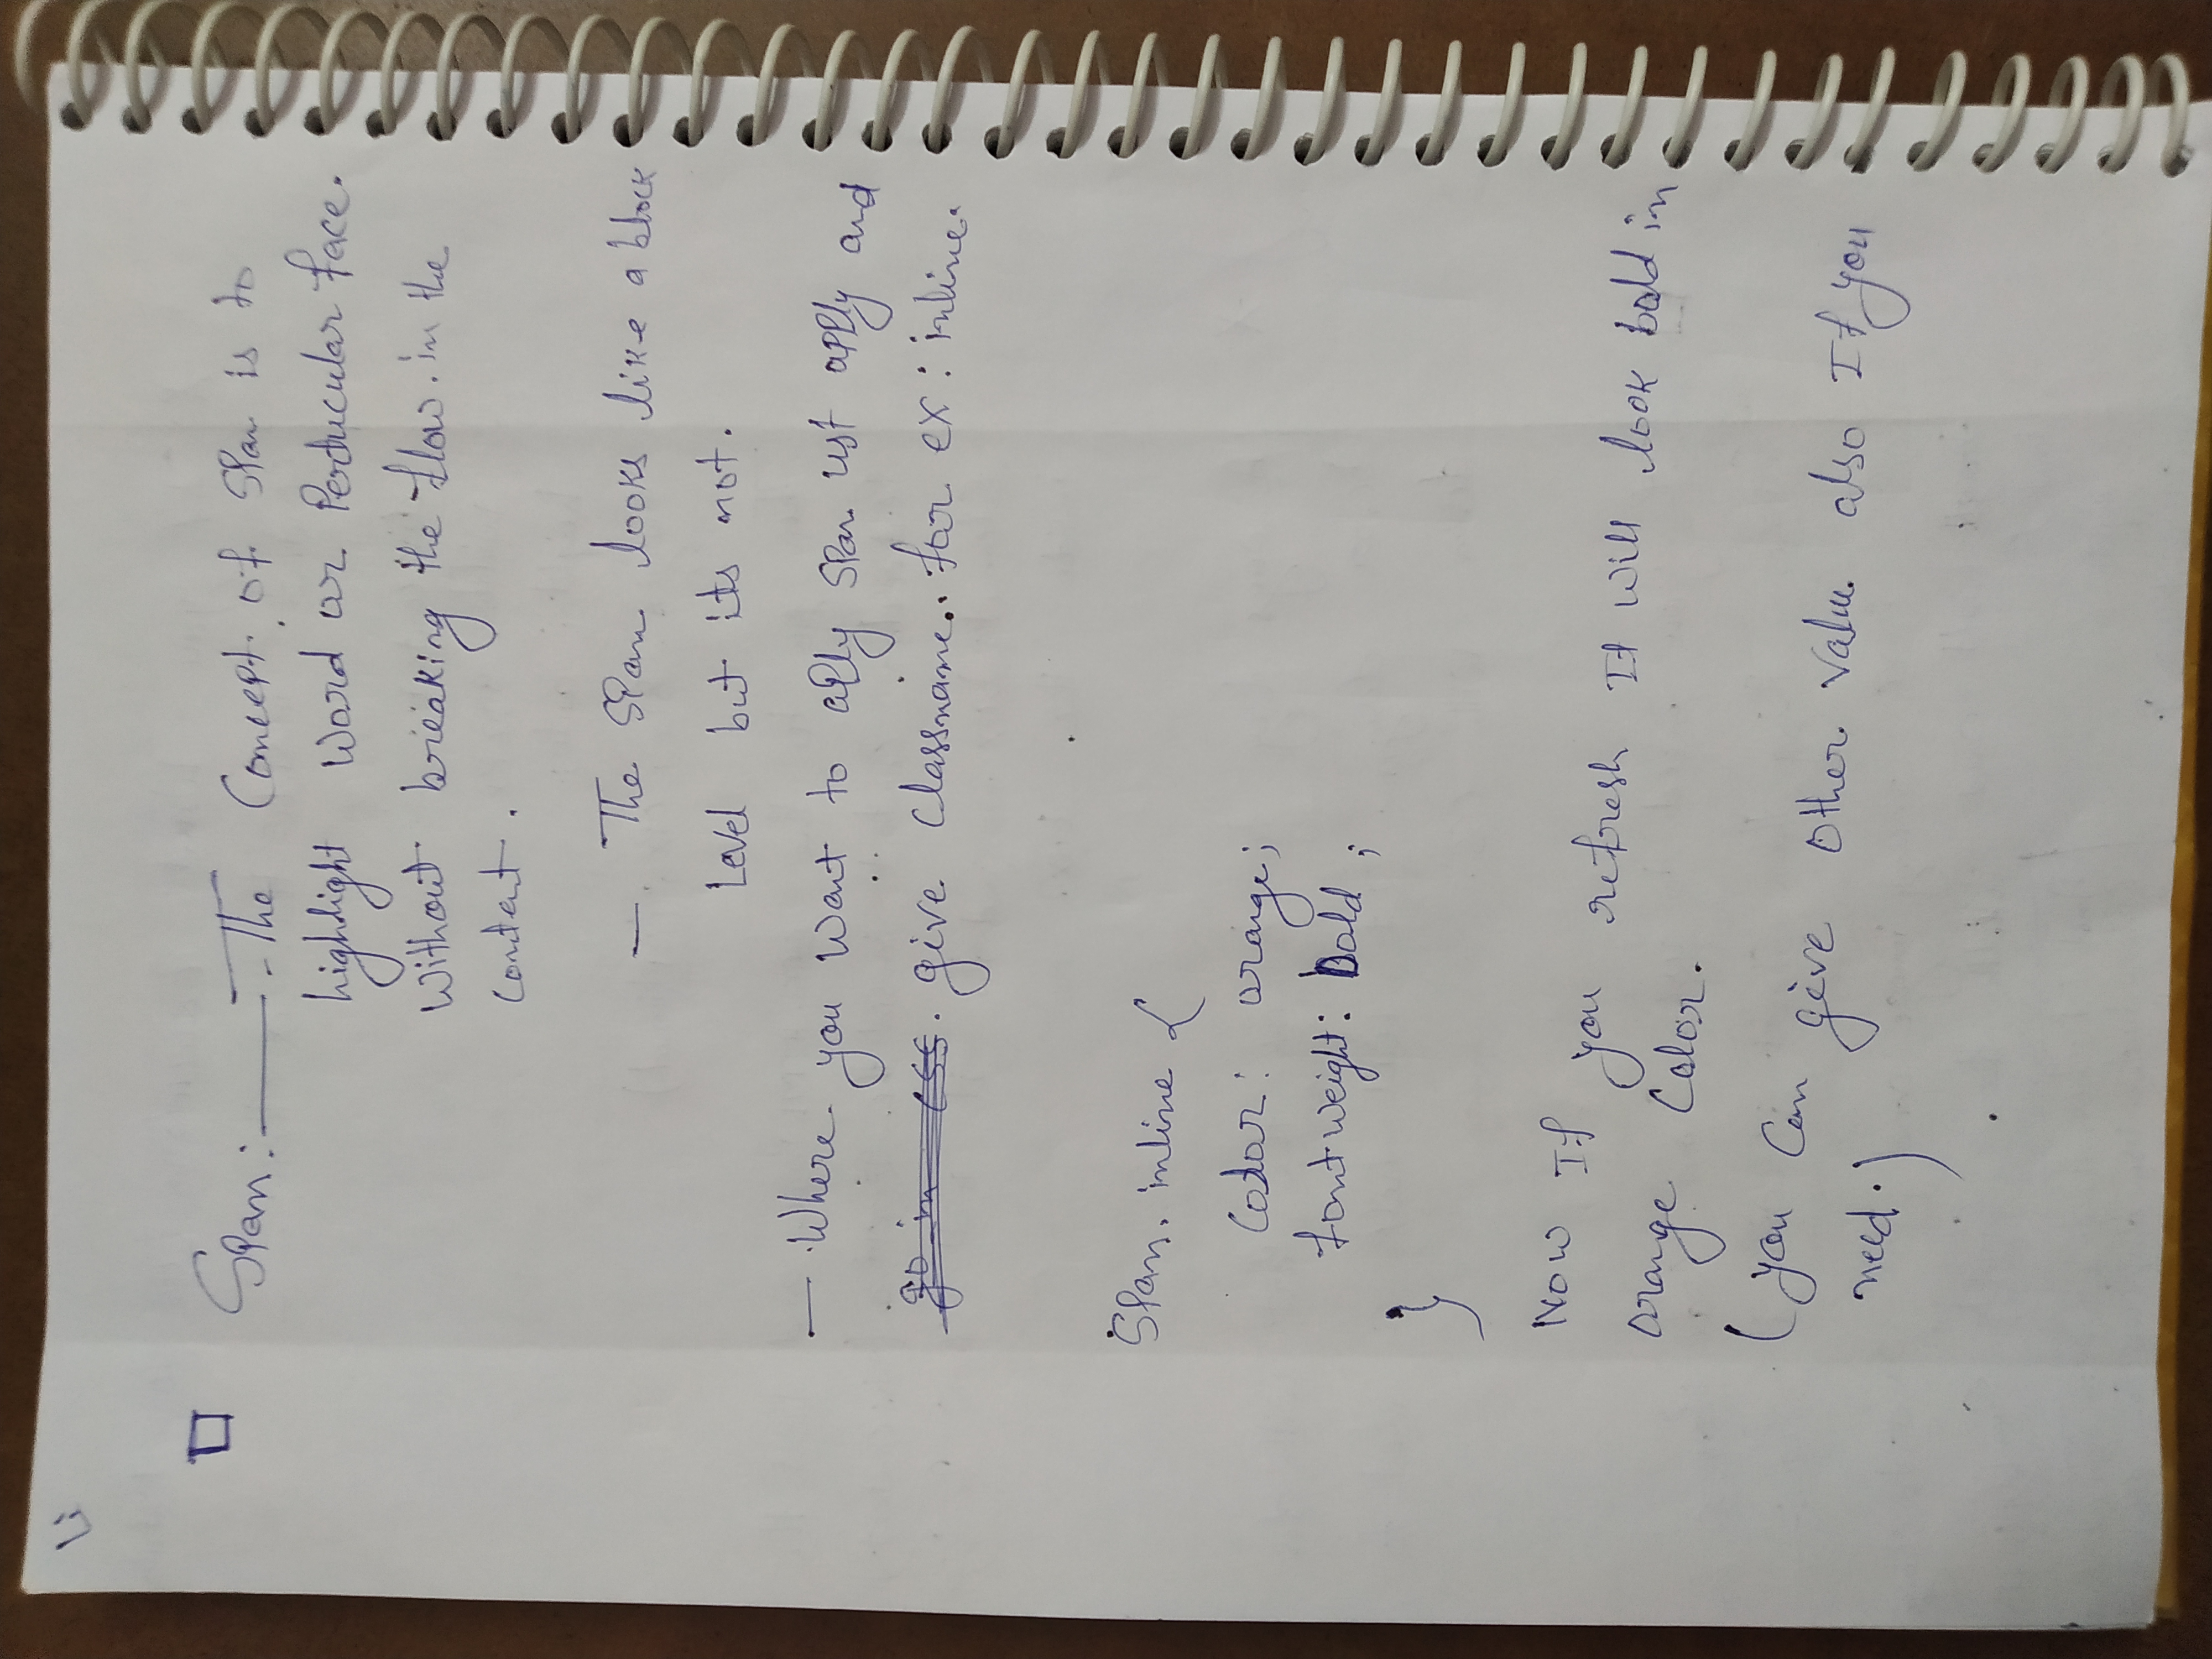 Span:— - The Concept of Span is to
highlight word or Perticular face.
without breaking the flow in the
content.
— The Span looks like a block
Level but its not.
— Where you want to apply span ust apply and
give classname. for ex: inline.
Span. inline {
Color: orange;
fontweight: bold;
}
Now If you refresh It will look bold in
orange Color.
(you Can give other value also If you
need.)